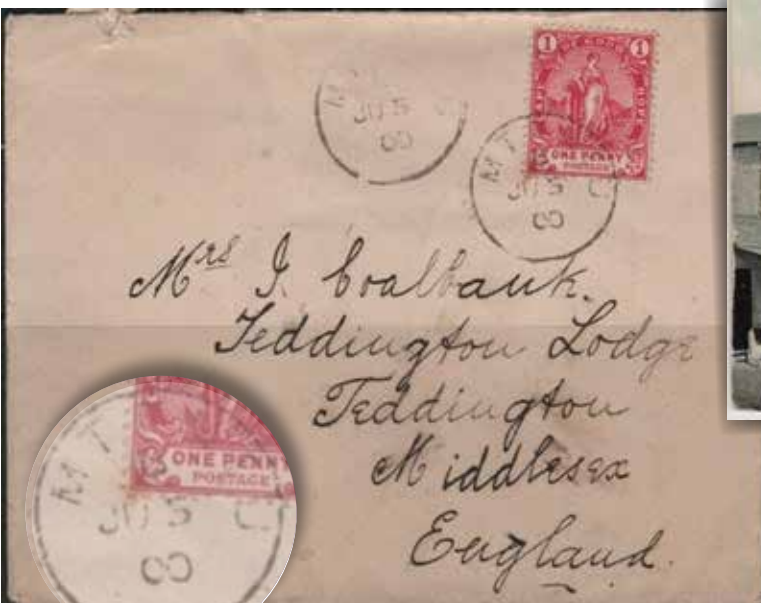 1 1
ONE PENNY
POSTAGE
JU 5
00
M T
JU 5 C
00
Mrs J. Coalbank.
Teddington Lodge
Teddington
Middlesex
England.
M T
ONE PENNY
POSTAGE
JU 5 C
00